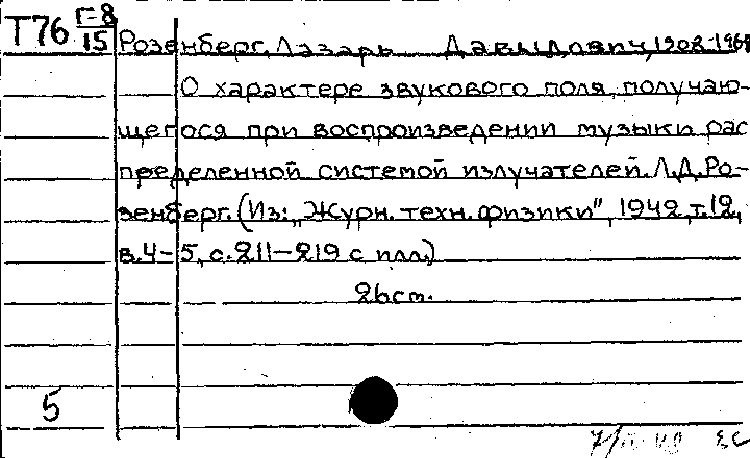 Т76 Г-8
15
Розенберг, Лазарь Давыдович, 1908-196
О характере звукового поля, получаю-
щегося при воспроизведении музыки рас
пределенной системой излучателей. Л.Д. Ро-
зенберг. (Из: „Журн. техн. физики", 1942, т.12,
в.4-5, с.211-219 с илл.)
26 см.
5